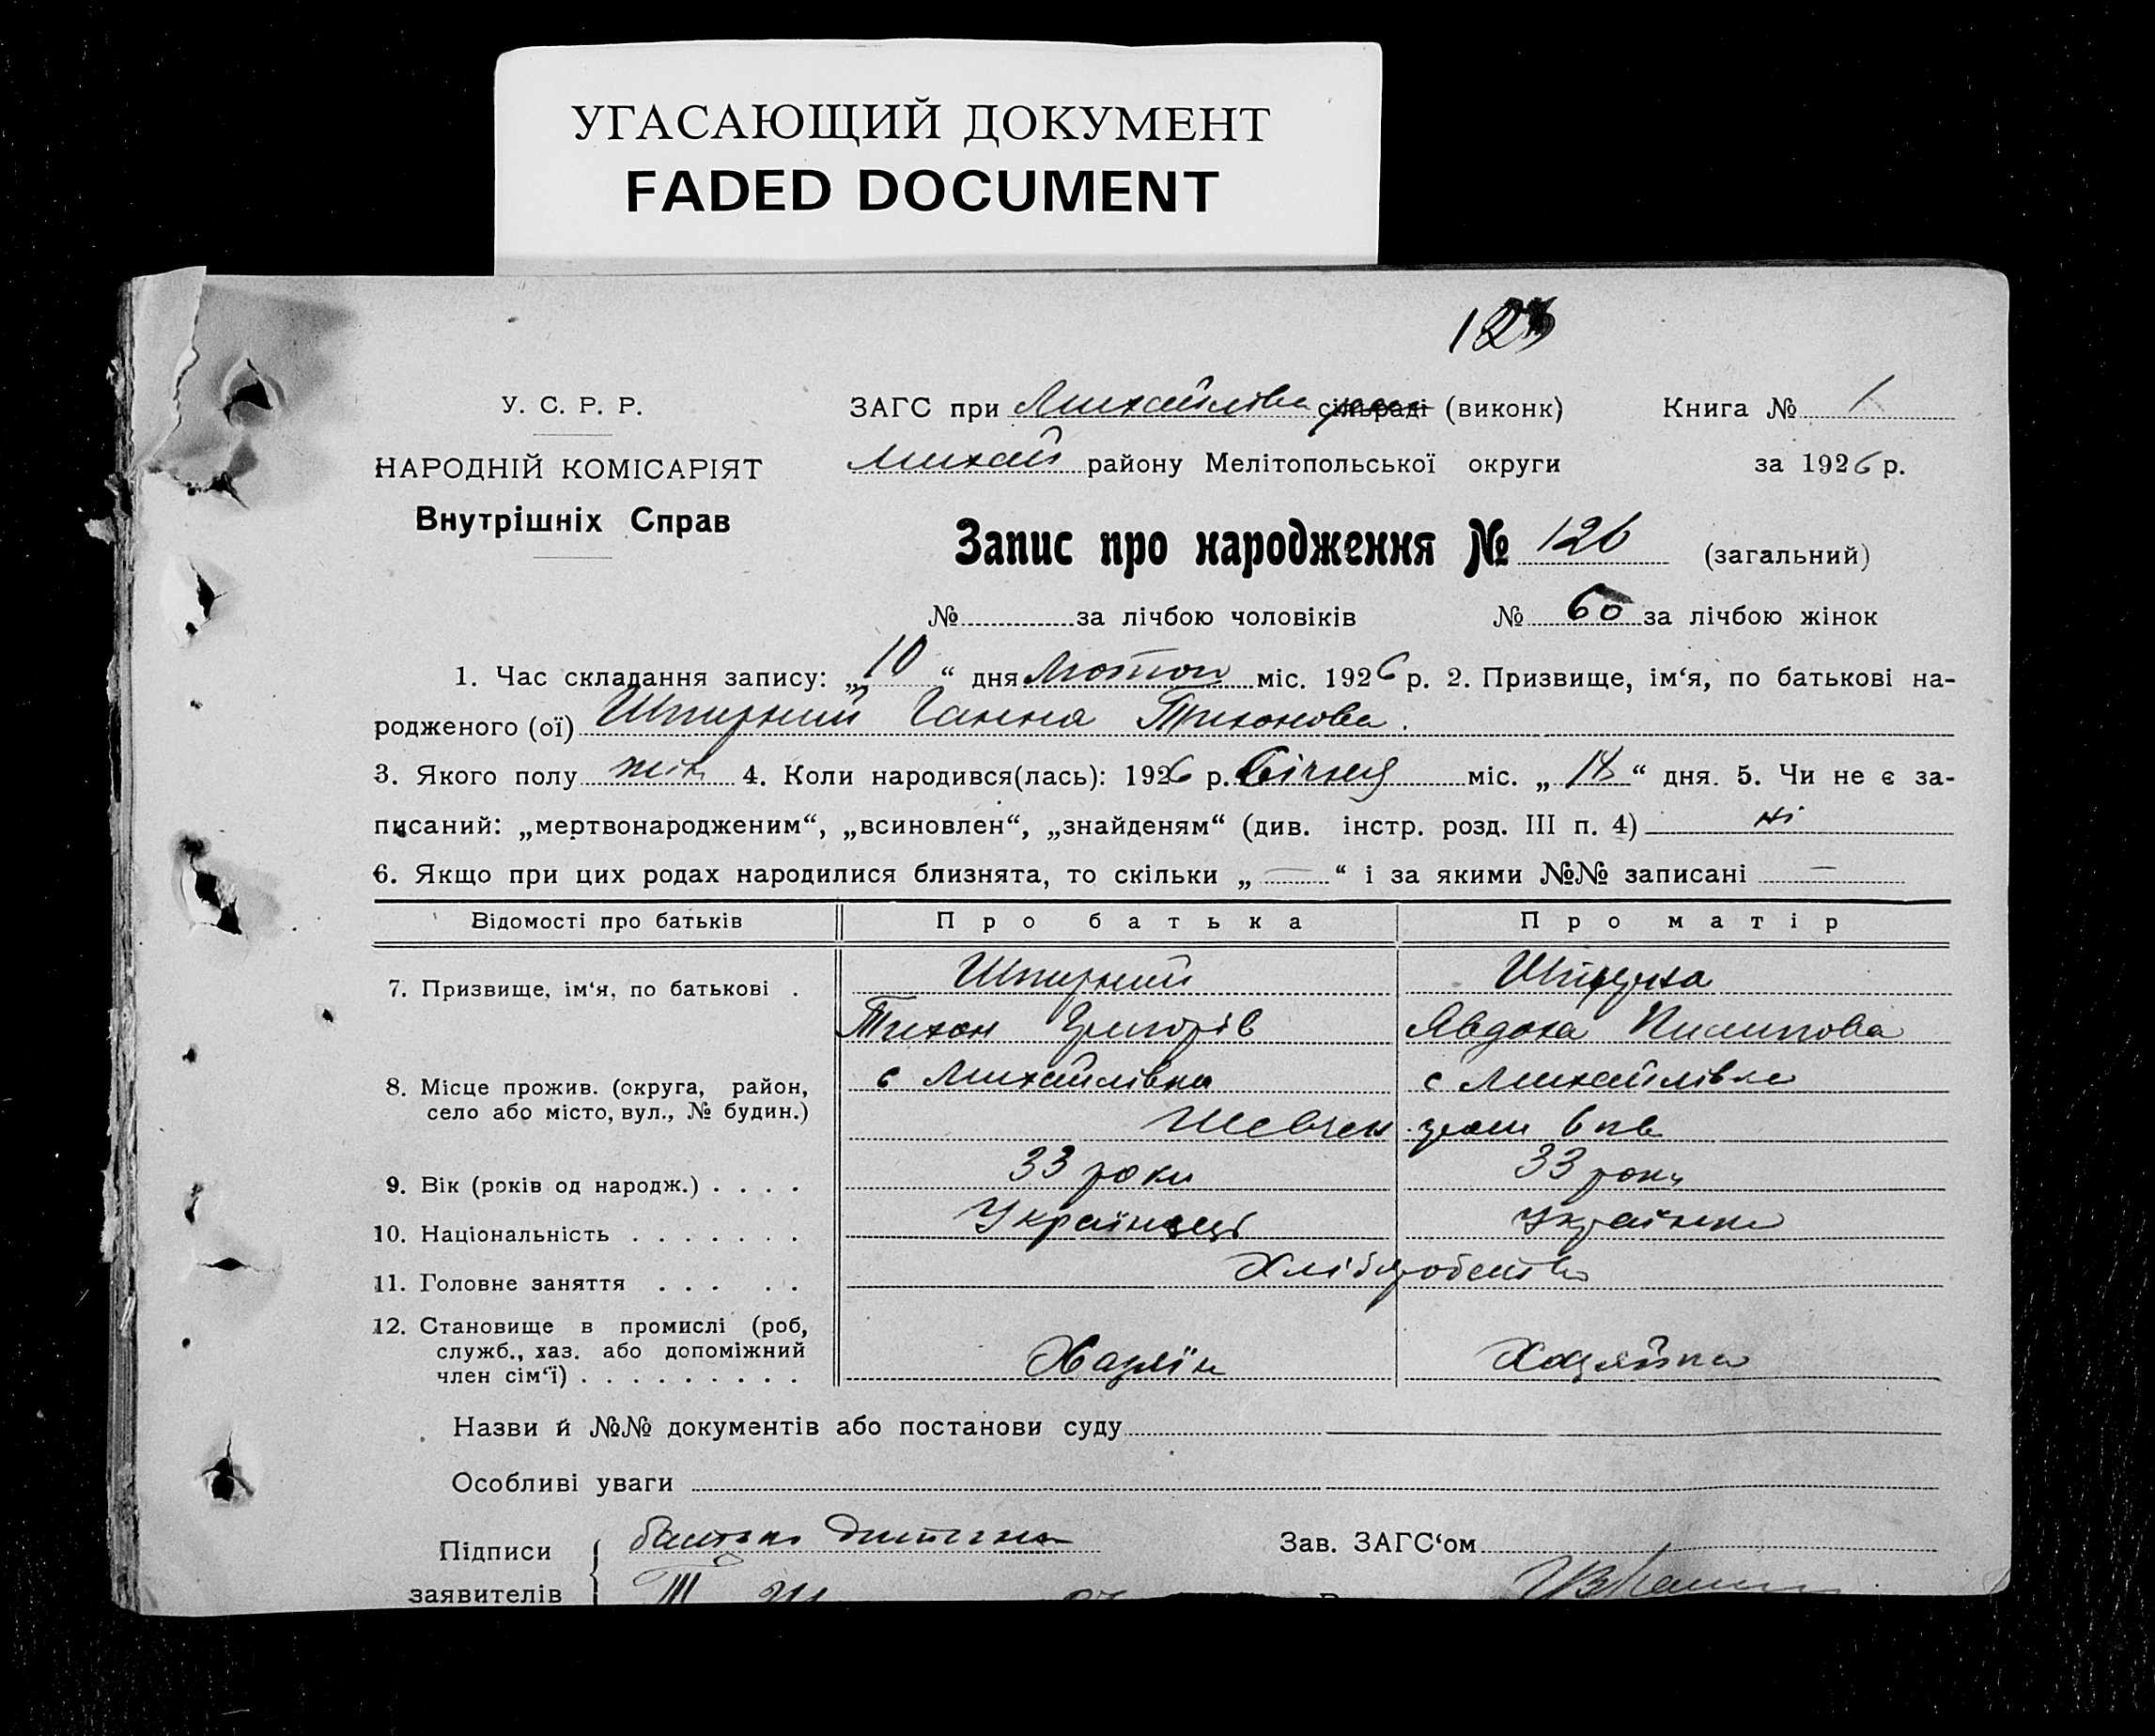 УГАСАЮЩИЙ ДОКУМЕНТ
FADED DOCUMENT
У. С. Р. Р.
НАРОДНІЙ КОМІСАРІЯТ
Внутрішніх Справ
ЗАГС при Михайлівс сільраді (виконк) Книга № 1
Михай району Мелітопольської округи за 1926 р.
Запис про народження № 126 (загальний)
№ за лічбою чоловіків № 60 за лічбою жінок
1. Час складання запису: „10“ дня Лютого міс. 1926 р. 2. Призвище, ім‘я, по батькові на-
родженого (ої) Шпирний Ганна Тихонова.
3. Якого полу жін 4. Коли народився(лась): 1926 р. Січня міс. „18“ дня. 5. Чи не є за-
писаний: „мертвонародженим“, „всиновлен“, „знайденям“ (див. інстр. розд. III п. 4) ні
6. Якщо при цих родах народилися близнята, то скільки „—“ і за якими №№ записані —
Відомості про батьків Про батька Про матір
7. Призвище, ім‘я, по батькові . Шпирний
Тихон Григорів Явдоха Пилипова
8. Місце прожив. (округа, район, с Михайлівка с Михайлівка
село або місто, вул., № будин.) Шевчен
9. Вік (років од народж.) . . . . 33 роки 33 роки
10. Національність . . . . . . . Українець Українка
11. Головне заняття . . . . . Хліборобство
12. Становище в промислі (роб,
служб., хаз. або допоміжний
член сім‘ї) . . . . . . . . . Хазяїн Хазяйка
Назви й №№ документів або постанови суду
Особливі уваги
Підписи батько дитини Зав. ЗАГС‘ом
заявителів